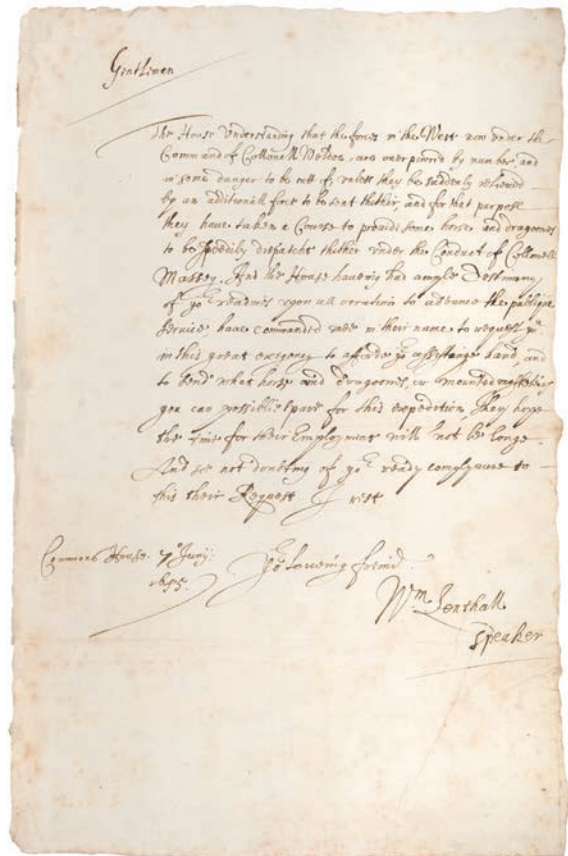 Gentlemen
The House Understanding that the forces in the West now under the
Command of Collonell Weldon, are over powred by number, and
in some danger to be cutt of, unless they be suddenly relieved
by an additionall force to be sent thither, and for that purpose
they have taken a Course to provide some horse and dragoones
to be speedily dispatcht thither under the Conduct of Collonell
Massey. And the House haveing had ample Testimony
of yor readines upon all occation to advance the publique
Service, have commanded mee in their name to request you
in this great exigency to afforde yor assistinge hand, and
to send what horse and Dragoones, or mounted musketiers
you can possiblie spare for this expedition. They hope
the time for their Employment will not be longe
And soe not doubting of yor ready complyance to
this their Request I rest
Commons House. 7o Junij:
1645.
Yor loveing freind
Wm Lenthall
Speaker